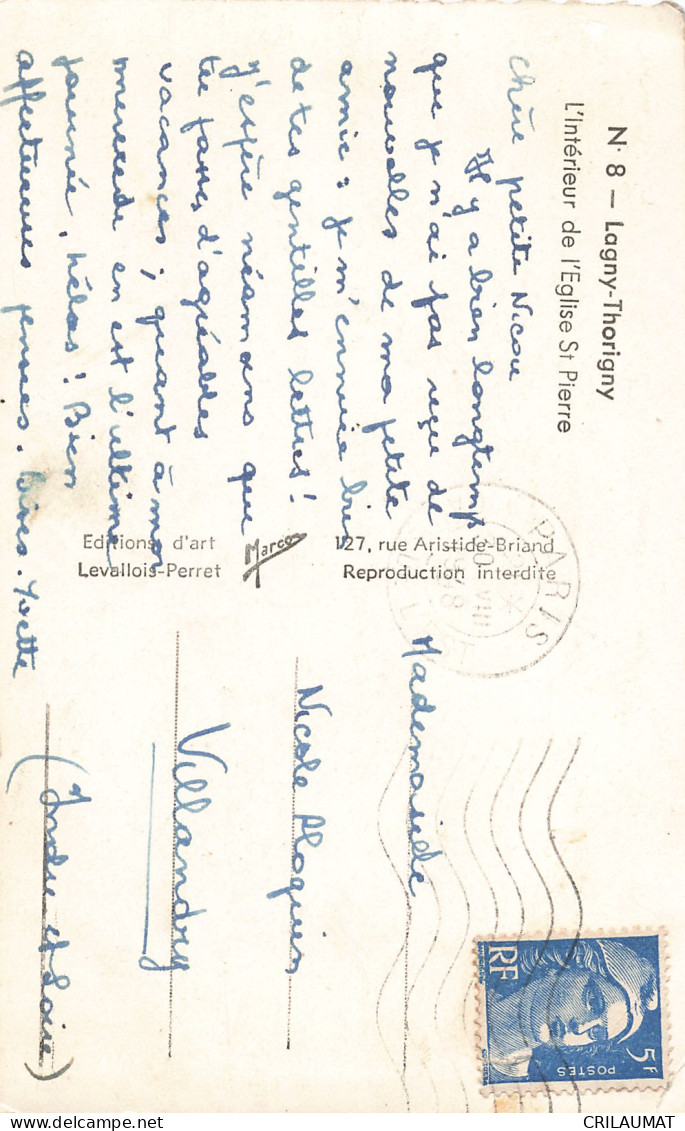 N° 8 — Lagny-Thorigny
L'Intérieur de l'Eglise St Pierre
Chère petite Nicou
Il y a bien longtemps
que je n'ai pas reçu de
nouvelles de ma petite
amie : je m'ennuie bien
de tes gentilles lettres!
J'espère néamons que
tu passes d'agréables
vacances ; quant à moi
mercredi en est l'ultime
journée, hélas! Bien
affectueuses pensées. Bises. Yvette
Editions d'art
Levallois-Perret
Marco
127, rue Aristide-Briand
Reproduction interdite
PARIS
Mademoiselle
Nicole Ploquin
Villandry
(Indre et Loire)
RF
POSTES
5F
CRILAUMAT